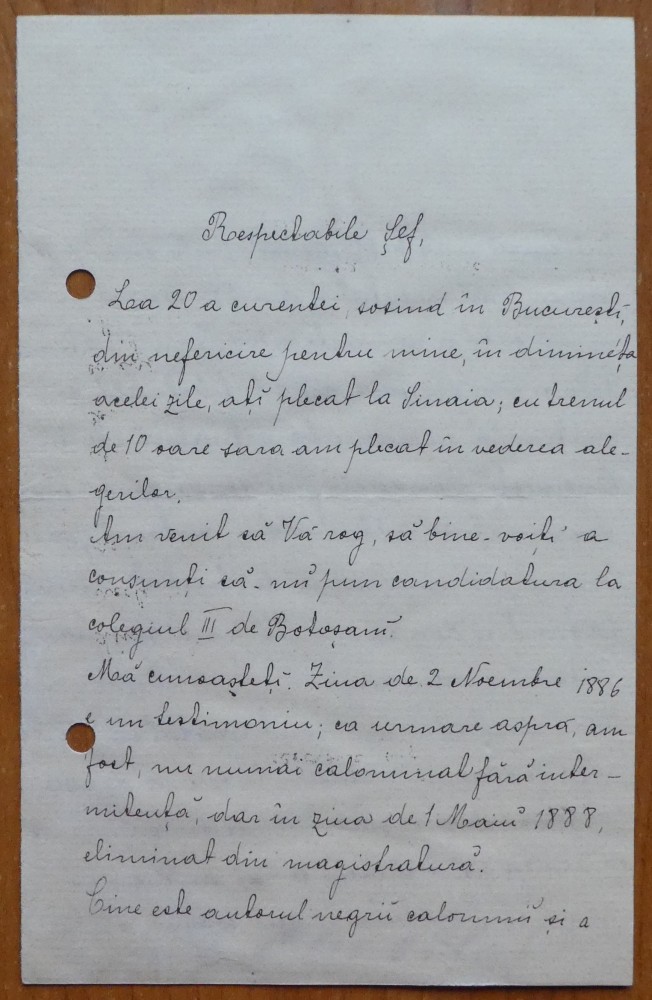 Respectabile Șef,
La 20 a curentei, sosind în Bucureștĭ,
din nefericire pentru mine, în dimineța
acelei zile, ațĭ plecat la Sinaia; cu trenul
de 10 oare sara am plecat în vederea ale-
gerilor.
Am venit să Vă rog, să bine-voițĭ a
consimți să-mĭ pun candidatura la
colegiul III de Botoșanĭ.
Mă cunoaștețĭ. Ziua de 2 Noembre 1886
e un testimoniu; ca urmare aspră, am
fost, nu numai calomniat fără inter-
mitență, dar în ziua de 1 Maiŭ 1888,
eliminat din magistratură.
Cine este autorul negrii calomnii și a